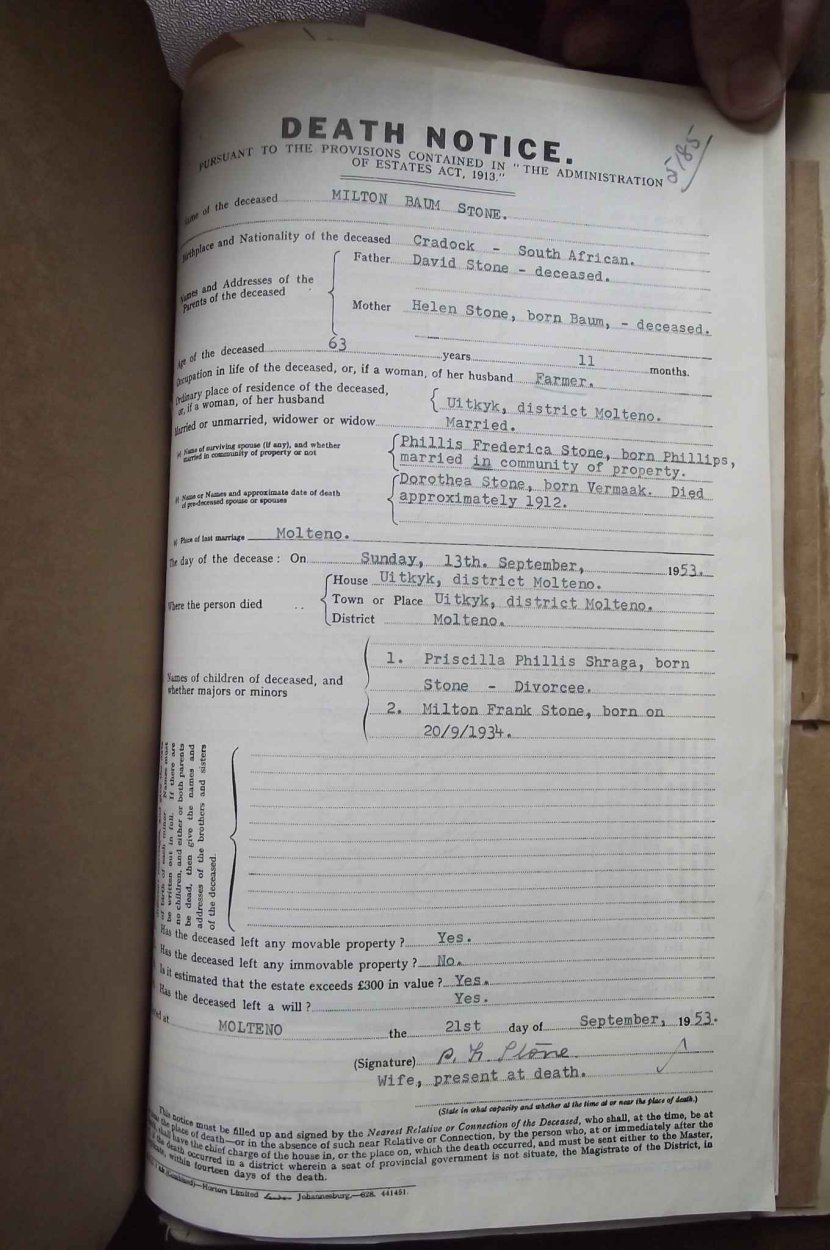 5785
DEATH NOTICE.
PURSUANT TO THE PROVISIONS CONTAINED IN "THE ADMINISTRATION
OF ESTATES ACT, 1913."
Name of the deceased MILTON BAUM STONE.
Birthplace and Nationality of the deceased Cradock - South African.
Names and Addresses of the Parents of the deceased
Father David Stone - deceased.
Mother Helen Stone, born Baum, - deceased.
Age of the deceased 63 years 11 months.
Occupation in life of the deceased, or, if a woman, of her husband Farmer.
Ordinary place of residence of the deceased,
or, if a woman, of her husband Uitkyk, district Molteno.
Married or unmarried, widower or widow Married.
Name of surviving spouse (if any), and whether
married in community of property or not
Phillis Frederica Stone, born Phillips,
married in community of property.
Name or Names and approximate date of death
of pre-deceased spouse or spouses
Dorothea Stone, born Vermaak. Died
approximately 1912.
Place of last marriage Molteno.
The day of the decease: On Sunday, 13th. September, 1953.
Where the person died
House Uitkyk, district Molteno.
Town or Place Uitkyk, district Molteno.
District Molteno.
Names of children of deceased, and
whether majors or minors
1. Priscilla Phillis Shraga, born
Stone - Divorcee.
2. Milton Frank Stone, born on
20/9/1934.
of birth of each minor. Names must
be written out in full. If there are
no children, and either or both parents
be dead, then give the names and
addresses of the brothers and sisters
of the deceased.
Has the deceased left any movable property? Yes.
Has the deceased left any immovable property? No.
Is it estimated that the estate exceeds £300 in value? Yes.
Has the deceased left a will? Yes.
at MOLTENO the 21st day of September, 1953.
(Signature) P. F. Stone
Wife, present at death.
(State in what capacity and whether at the time at or near the place of death.)
This notice must be filled up and signed by the Nearest Relative or Connection of the Deceased, who shall, at the time, be at
the place of death—or in the absence of such near Relative or Connection, by the person who, at or immediately after the
shall have the chief charge of the house in, or the place on, which the death occurred, and must be sent either to the Master,
if the death occurred in a district wherein a seat of provincial government is not situate, the Magistrate of the District, in
within fourteen days of the death.
Hortors Limited Johannesburg.—628. 441451.